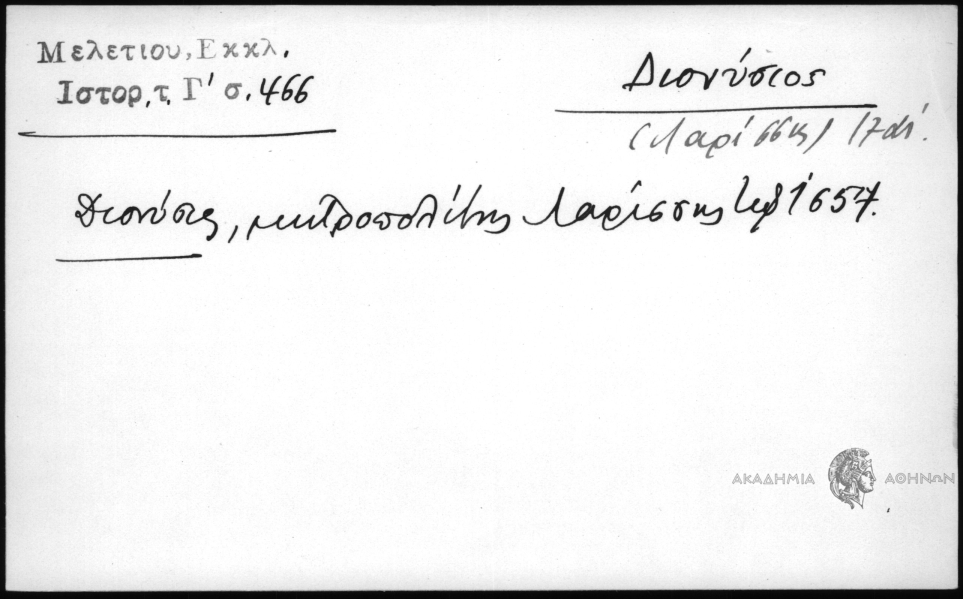 Μελετιου, Εκκλ.
Ιστορ, τ. Γ' σ. 466
Διονύσιος
(Λαρίσσης) 17
Διονύσιος, μητροπολίτης Λαρίσσης 1657.
ΑΚΑΔΗΜΙΑ ΑΘΗΝΩΝ